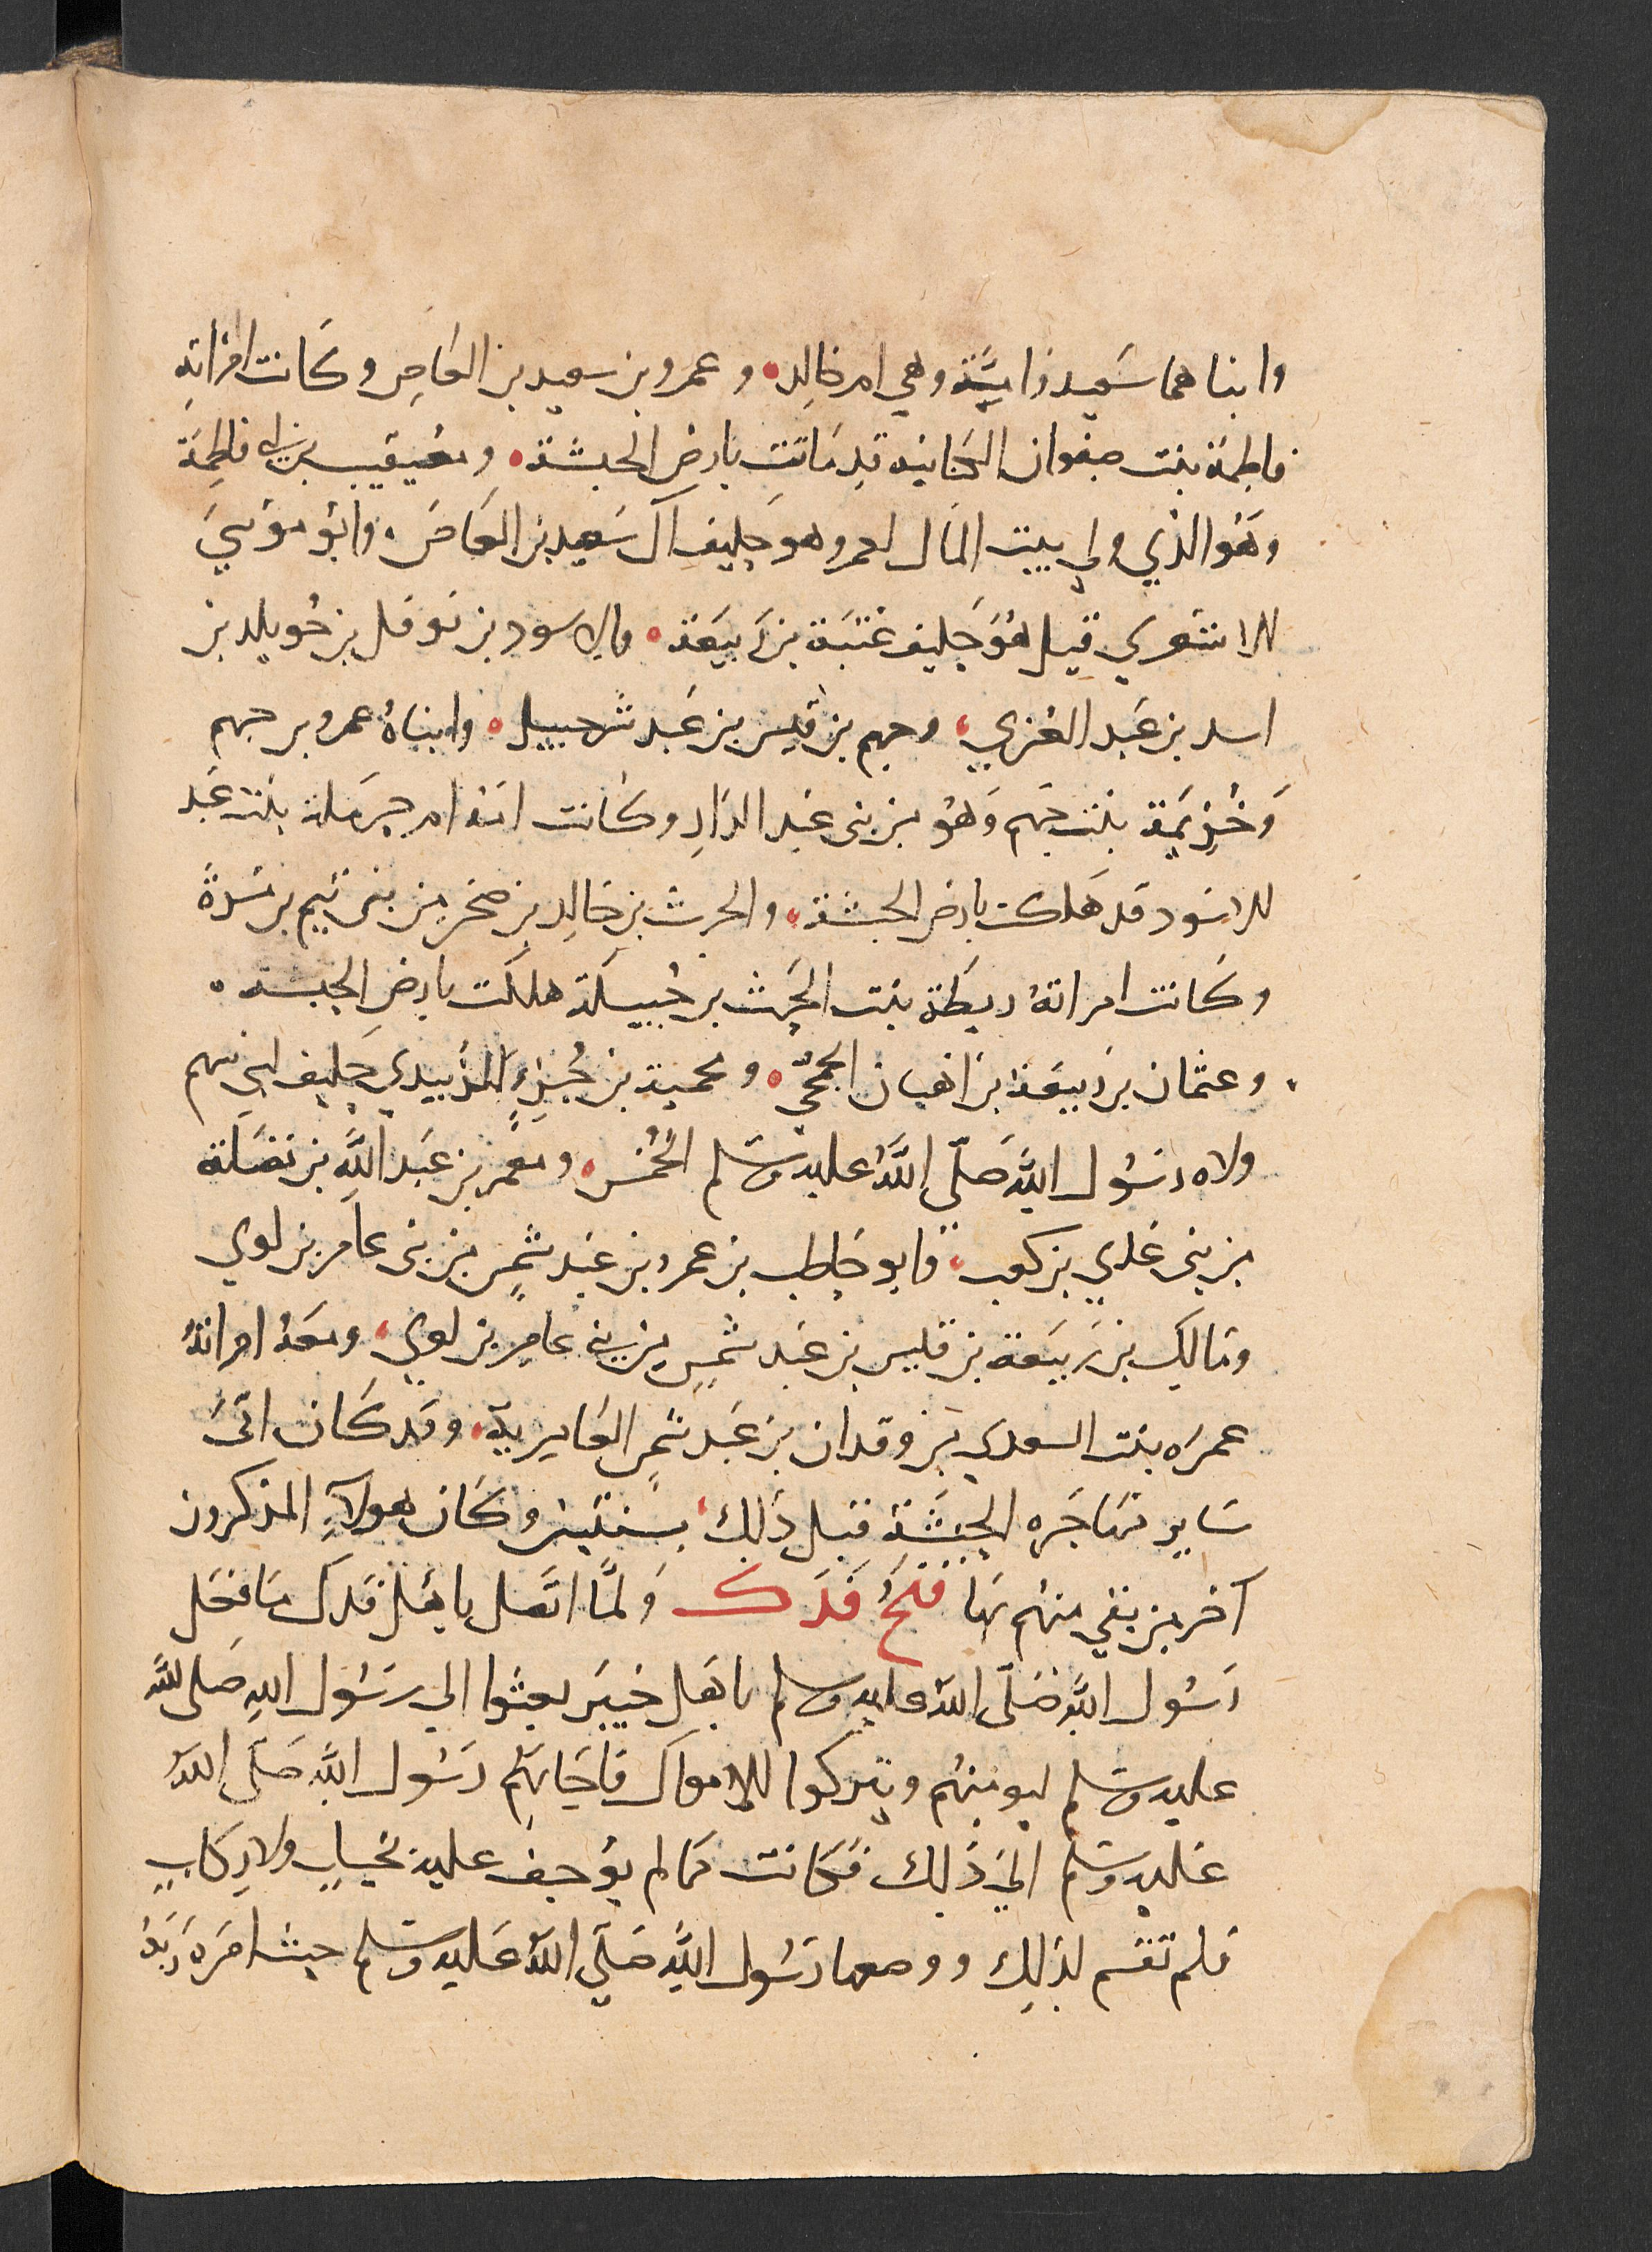 وابناهما سَعيد وامَيَّة وهي ام خالد ۰ وعمرو بن سعيد بن العَاصِ وكَانت امْرَاته
فاطِمَة بنت صفوان الكنانية قد مَاتَت بارض الحبشة ۰ ومعيقيب بن ابي فاطِمَة
وهَوُ الذي ولي بيت المَال لعمر وهو حليف آل سَعيد بن العَاصَ ۰ وابوُ موُسيَ
الاشعري قيل هُوَ حَليف عُتبَة بن رَبيعَة ۰ والاسود بن نوفل بن خُويلد بن
اسد بن عَبد العُزي ، وجهم بن قيس بن عَبد شرحبيل ۰ وابناهُ عمرو بن جهم
وَخُزيمَة بنت جَهم وَهوُ من بني عَبد الدَارِ وكانت امَهُ ام حرمَلة بنت عَبد
الاسَود قد هَلكت بارض الحبشة ، والحرث بن خالِد بن صخر من بني تيم بن مُرة
وكَانت امراتهُ ريطَة بنت الحَرث بن جُبيلَة هلكت بارض الحبشة ۰
وعثمان بن رَبيعَة بن اهبان الجمحيّ ۰ ومحمية بن جُزءٍ الزبيدي حَليف لبني سهم
ولاه رسُول الله صَلّى اللهُ عليه وسَلم الخُمُس ۰ ومعمَر بن عَبد اللهِ بن نضَلَة
من بني عَدي بن كعب ، وابو حَاطب بن عمرو بن عَبد شمسٍ من بني عامر بن لوي
ومَالك بن رَبيعَة بن قليس بن عَبد شمسٍ من بني عامِر بن لوي ، ومعَهُ امراتهُ
عمرَه بنت السعدي بن وقدان بن عَبد شمسِ العَامِرية ، وقد كَان اتىَ
سَاير مهَاجَره الحَبَشَة قبل ذلِك ، بسنتين وكَان هولآءِ المذكرون
آخر من بقي منهم بهَا فَتحُ فَدَك وَلمَّا اتصَل باهْل فَدك مَا فعَل
رَسُول اللهِ صَلّى اللهُ عليه وسلم باهَل خيبَر بعثوا الي رسُول اللهِ صَلى اللهُ
عليه وسَلم ليومنهُم ويتركوا الامواَل فاجَابَهُم رسُول الله صَلّى اللهُ
عَليه وسَلم الي ذَلِك فكَانت مما لم يوُجف عليه بخيلٍ ولا رِكَابٍ
فلم تقسم لذلِك ووضعها رَسُول الله صَلّي اللهُ عَليه وسَلم حيث امَرهَ رَبهُ